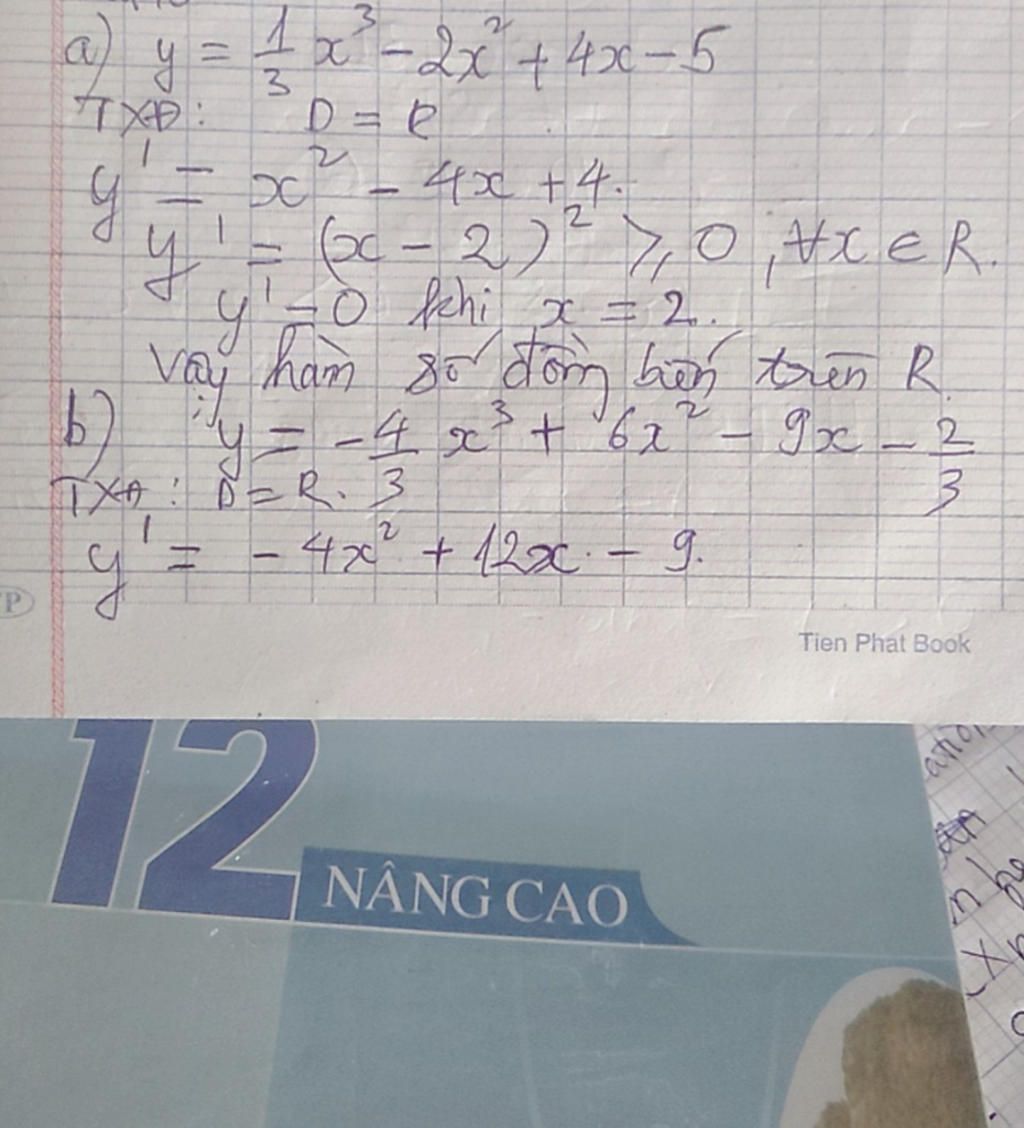 a) y = 1/3 x³ - 2x² + 4x - 5
TXĐ: D = R
y' = x² - 4x + 4.
y' = (x - 2)² ⩾ 0, ∀x ∈ R.
y' = 0 khi x = 2.
Vậy hàm số đồng biến trên R.
b) y = -4/3 x³ + 6x² - 9x - 2/3
TXĐ: D = R.
y' = -4x² + 12x - 9.
TP
Tien Phat Book
12
NÂNG CAO